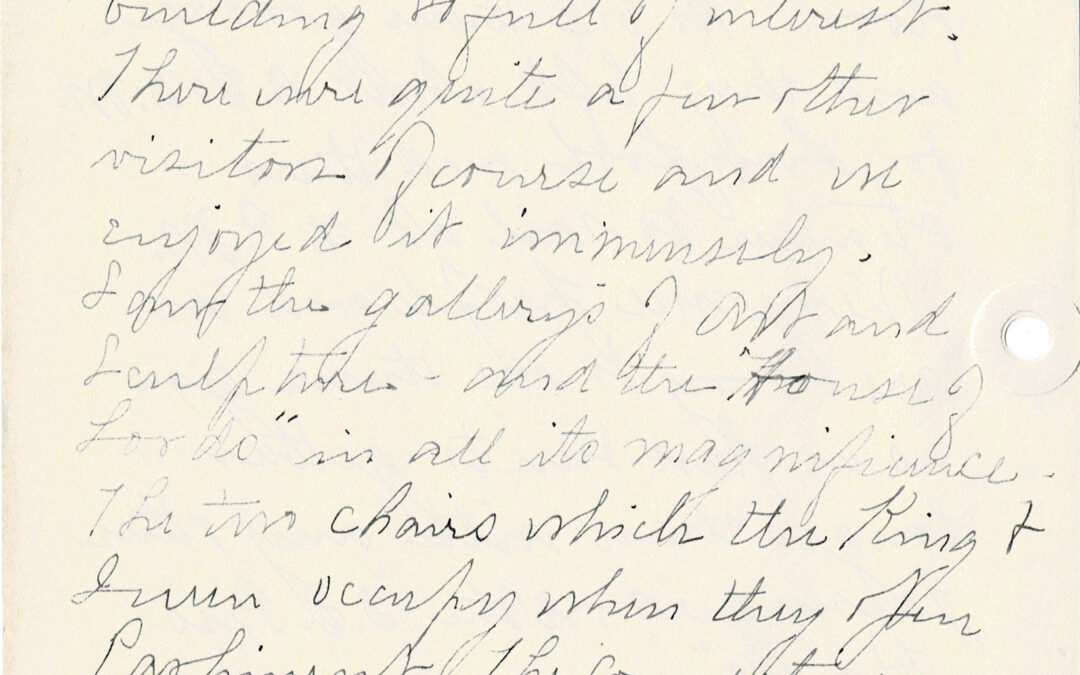 building so full of interest.
There were quite a few other
visitors of course and we
enjoyed it immensely.
Saw the gallerys of Art and
Sculpture - and the "House of
Lords" in all its magnifience -
The two chairs which the King &
Queen occupy when they open
Parliment. The